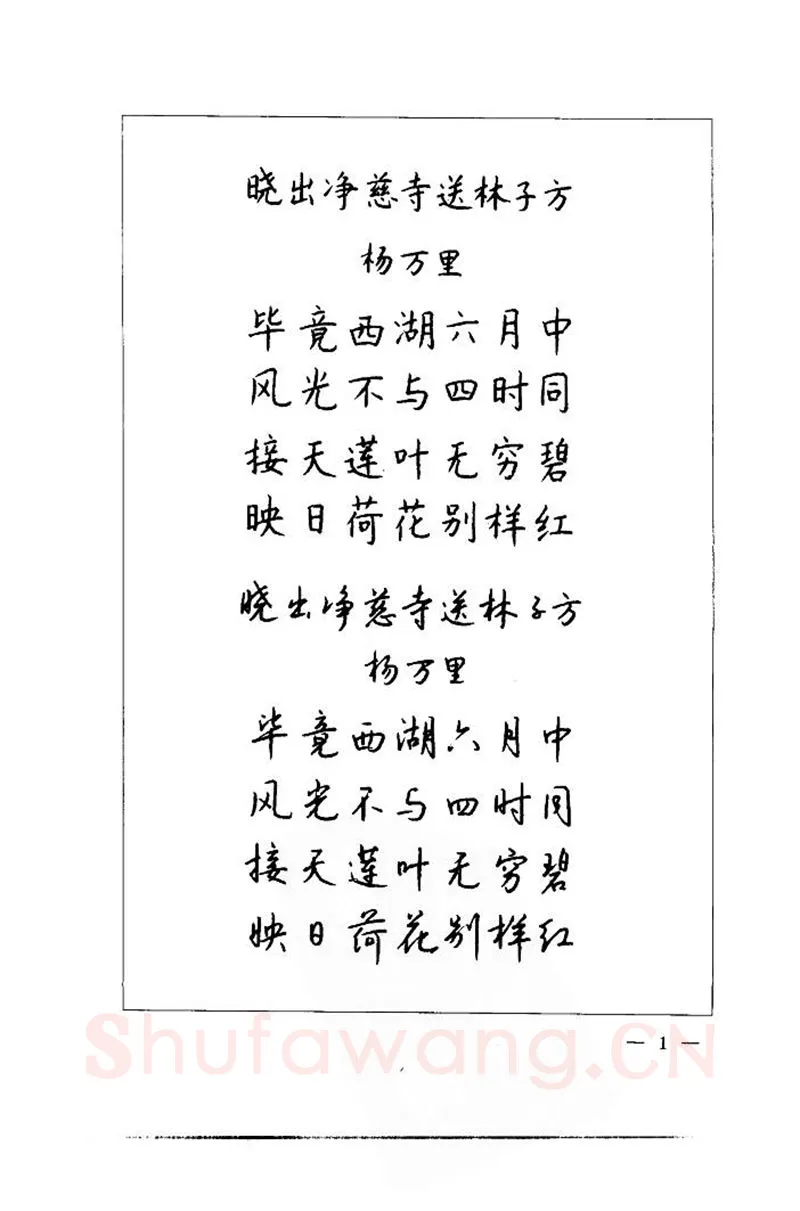 晓出净慈寺送林子方
杨万里
毕竟西湖六月中
风光不与四时同
接天莲叶无穷碧
映日荷花别样红
晓出净慈寺送林子方
杨万里
毕竟西湖六月中
风光不与四时同
接天莲叶无穷碧
映日荷花别样红
— 1 —
Shufawang.CN